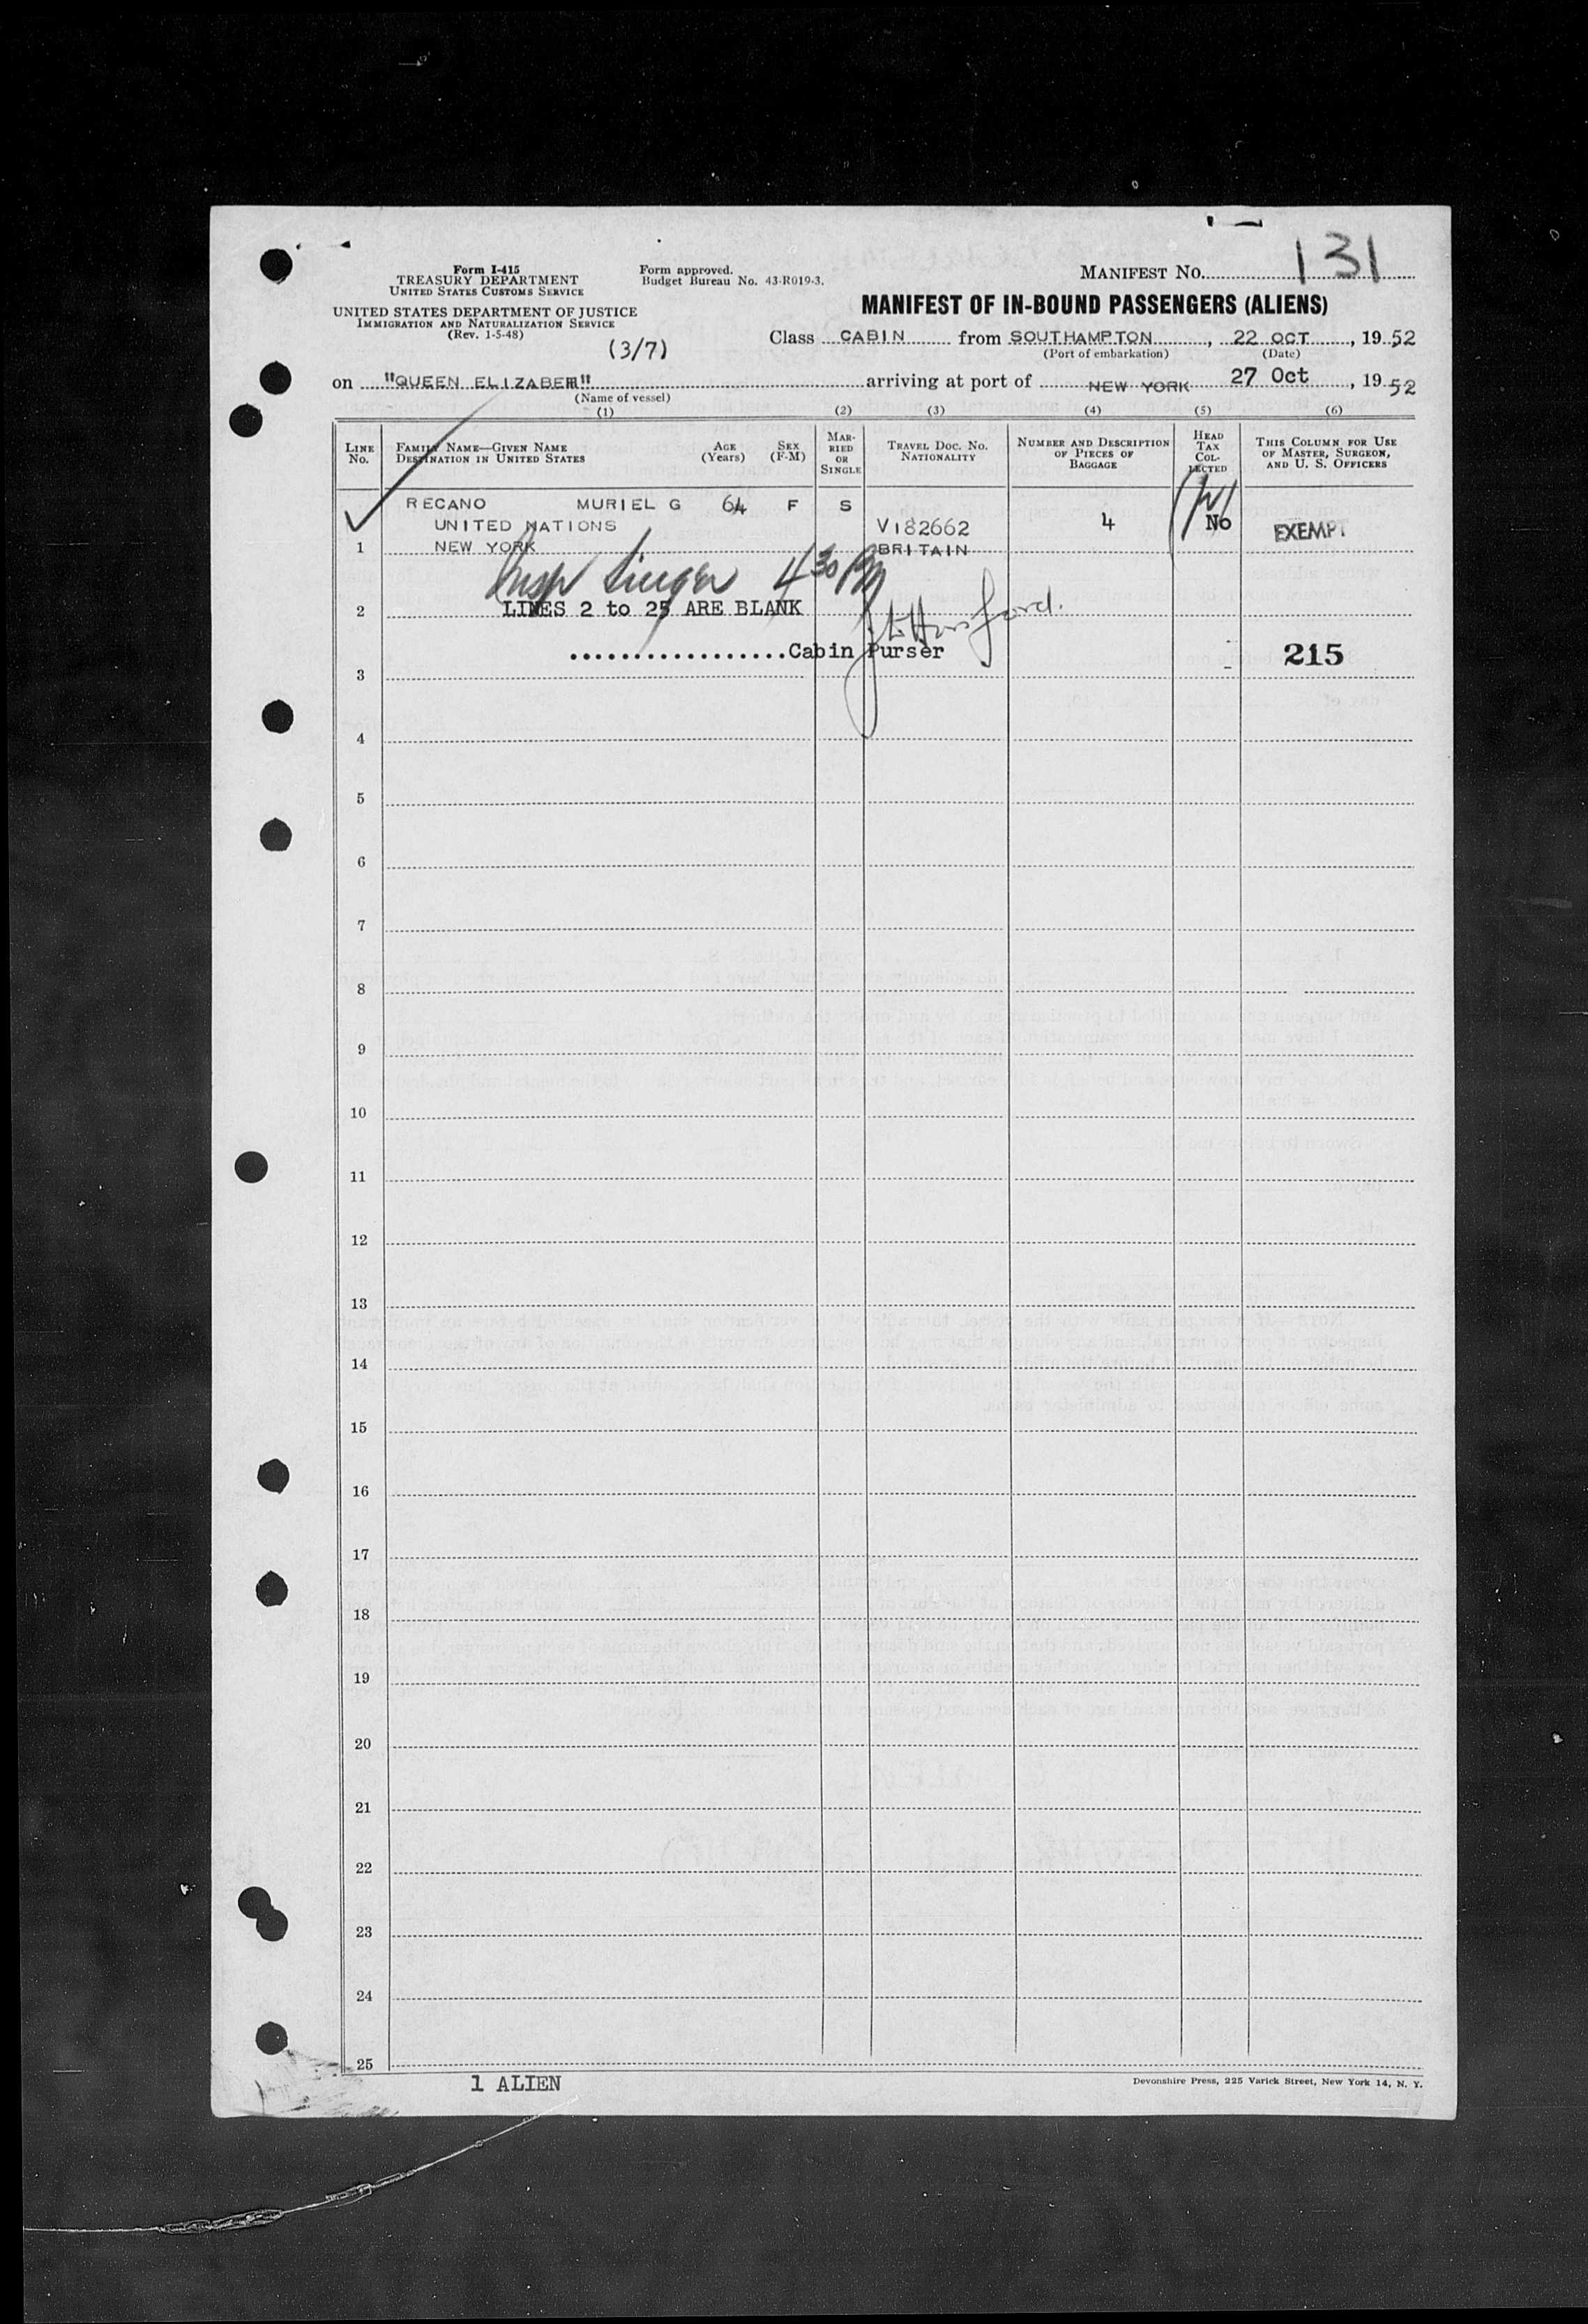 Form I-415
TREASURY DEPARTMENT
UNITED STATES CUSTOMS SERVICE
UNITED STATES DEPARTMENT OF JUSTICE
IMMIGRATION AND NATURALIZATION SERVICE
(Rev. 1-5-48)
(3/7)
Form approved.
Budget Bureau No. 43-R019-3.
MANIFEST NO. 131
MANIFEST OF IN-BOUND PASSENGERS (ALIENS)
Class CABIN from SOUTHAMPTON, 22 OCT, 1952
(Port of embarkation) (Date)
on "QUEEN ELIZABETH" arriving at port of NEW YORK 27 Oct, 1952
(Name of vessel)
(1) (2) (3) (4) (5) (6)
LINE NO.
FAMILY NAME—GIVEN NAME
DESTINATION IN UNITED STATES
AGE (Years)
SEX (F-M)
MARRIED OR SINGLE
TRAVEL DOC. NO.
NATIONALITY
NUMBER AND DESCRIPTION OF PIECES OF BAGGAGE
HEAD TAX COLLECTED
THIS COLUMN FOR USE OF MASTER, SURGEON, AND U. S. OFFICERS
RECANO MURIEL G 64 F S
UNITED NATIONS V182662 4 No EXEMPT
1 NEW YORK BRITAIN
Insp Singer 4 30 PM
2 LINES 2 to 25 ARE BLANK
.................Cabin Purser 215
3
4
5
6
7
8
9
10
11
12
13
14
15
16
17
18
19
20
21
22
23
24
25
1 ALIEN
Devonshire Press, 225 Varick Street, New York 14, N. Y.